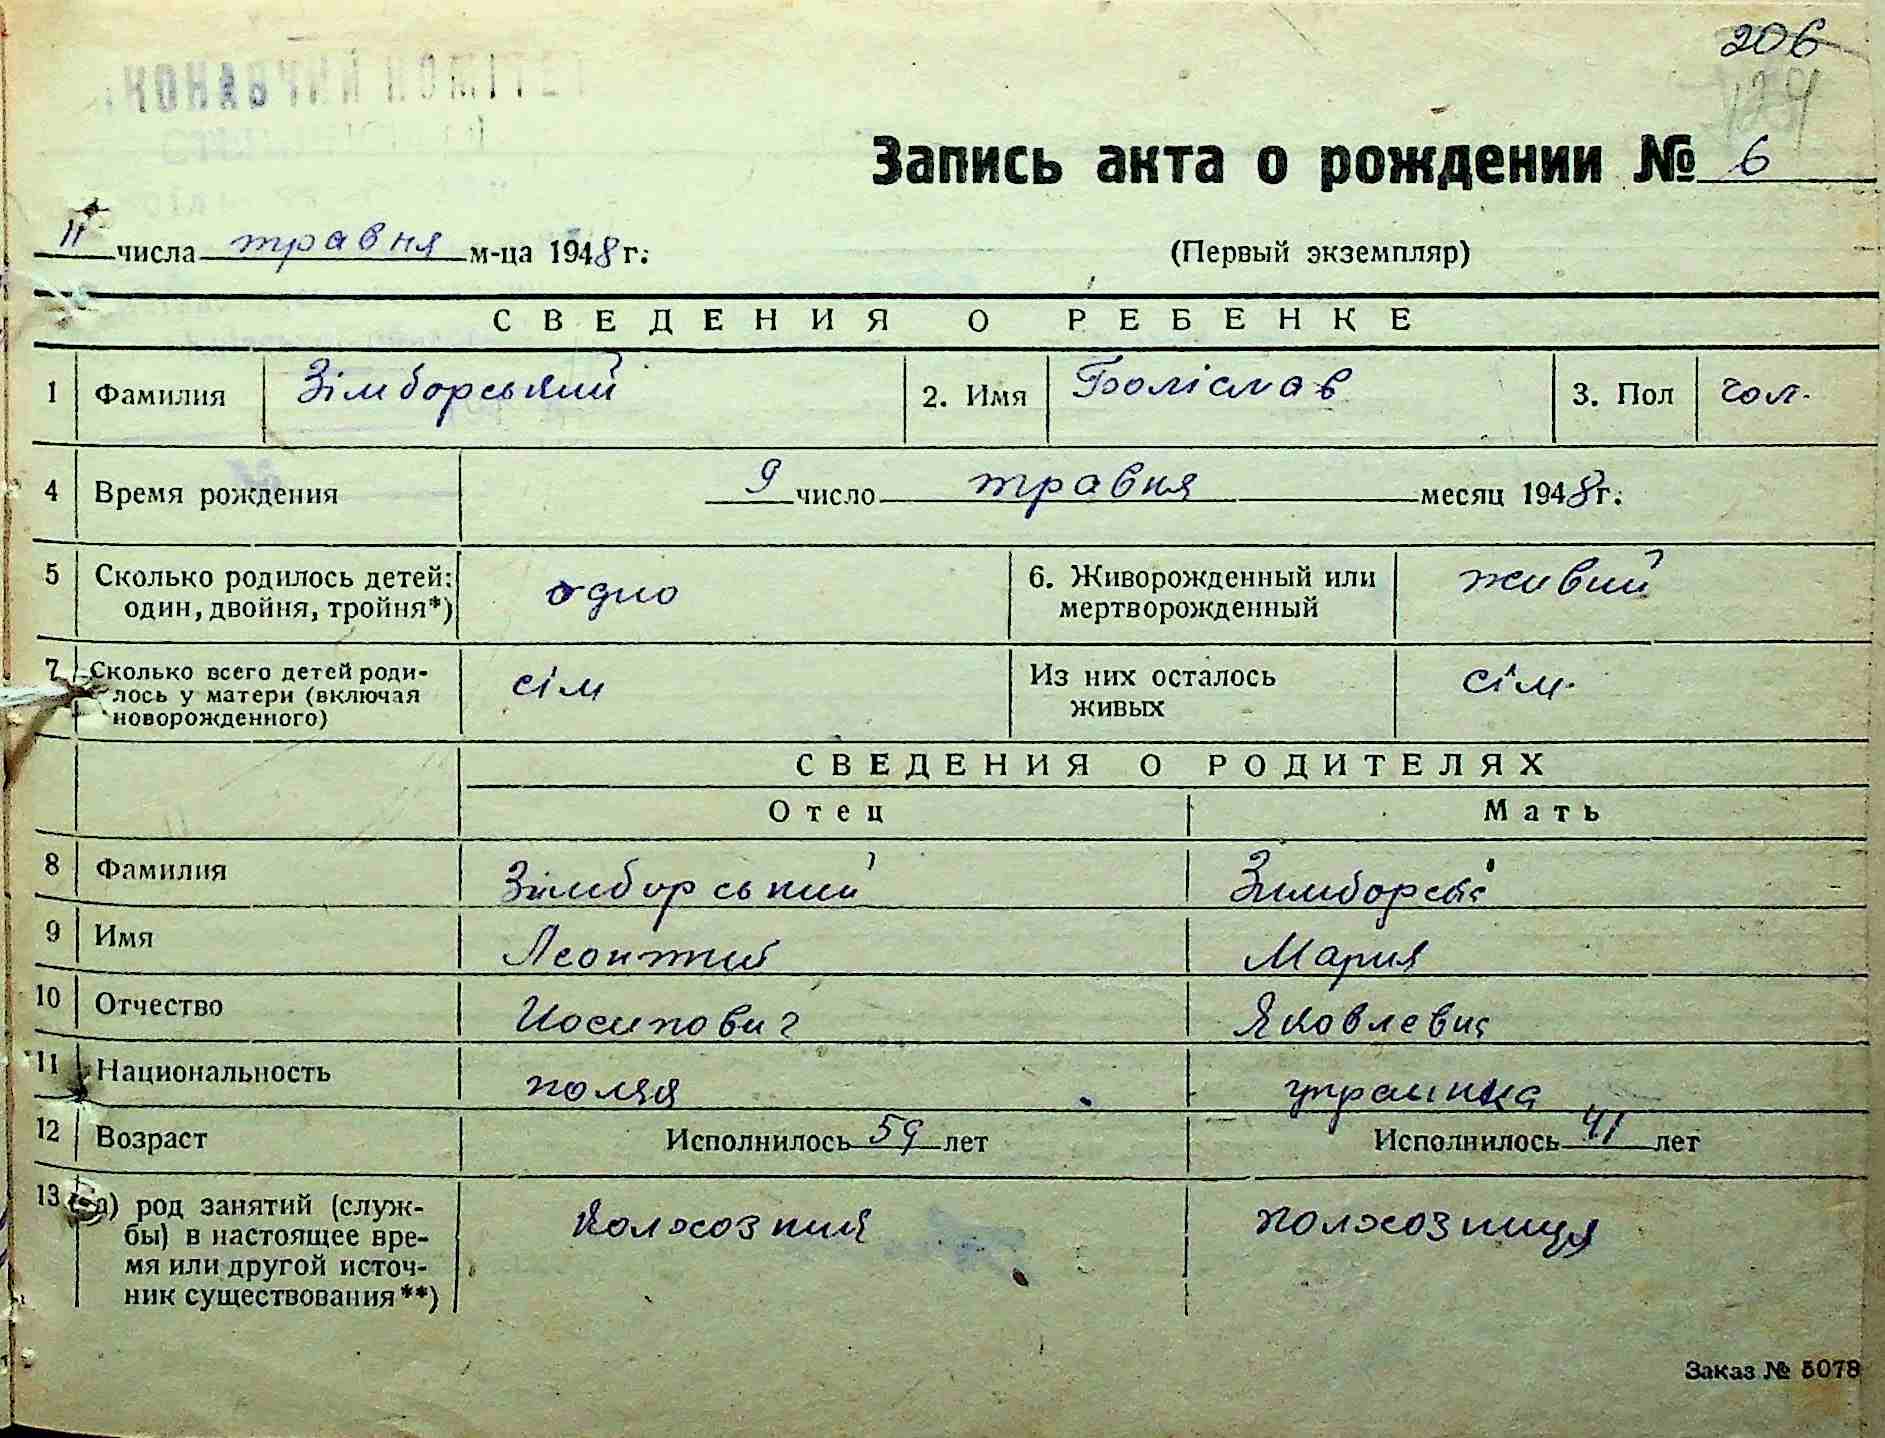 206
Запись акта о рождении № 6
11 числа травня м-ца 1948 г.
(Первый экземпляр)
СВЕДЕНИЯ О РЕБЕНКЕ
1 Фамилия Зімборський 2. Имя Боліслав 3. Пол чол.
4 Время рождения 9 число травня месяц 1948 г.
5 Сколько родилось детей: один, двойня, тройня*) одно 6. Живорожденный или мертворожденный живий
7 Сколько всего детей родилось у матери (включая новорожденного) сім Из них осталось живых сім.
СВЕДЕНИЯ О РОДИТЕЛЯХ
Отец Мать
8 Фамилия Зімборський
9 Имя Леонтий Мария
10 Отчество Иосипович Яковлевна
11 Национальность поляк украинка
12 Возраст Исполнилось 59 лет Исполнилось 41 лет
13 а) род занятий (служ-
бы) в настоящее вре-
мя или другой источ-
ник существования**) колхозник колхозниця
Заказ № 5078